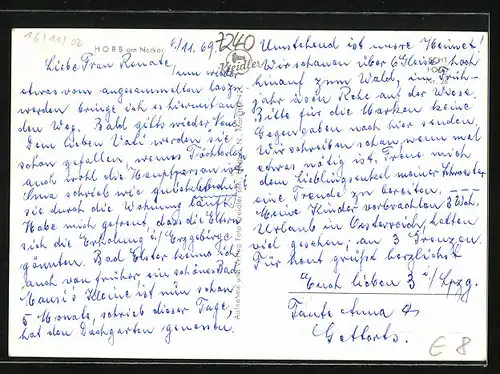 16/11/02
HORB am Neckar
6/11.69.
7240
Kreidler
Liebe Frau Renate,
nun wieder
etwas vom angesammelten loszu-
werden bringe ich es hiermit auf
den Weg. Bald gibts wieder Neues
Dem lieben Vati werden sie
schon gefallen, wenns Töchterlein
auch wohl die Hauptperson ist
Oma schrieb wie
sie durch die Wohnung läuft.
Habe mich gefreut, dass die Eltern
sich die Erholung i/ Erzgebirge
gönnten. Bad Elster kenne ich
auch von früher ein schönes Bad
Mausi's Kleine ist nun schon
5 Monate, schrieb dieser Tage,
hat den Dachgarten genossen.
Umstehend ist unsre Heimat!
Wir schauen über 6 Gleise hoch
hinauf zum Wald, im Früh-
jahr äsen Rehe auf der Wiese.
Bitte für die Marken keine
Gegengaben nach hier senden.
Wir schreiben schon wenn mal
etwas nötig ist. Freue mich
dem Lieblingsenkel meiner Schwester
eine Freude zu bereiten. ---
Meine Kinder verbrachten 3 Woh.
Urlaub in Oesterreich, hatten
viel gesehen, an 3 Grenzen.
Für heut grüßt herzlichst
Euch lieben 3 i/ Lpzg.
Tante Anna
E 8